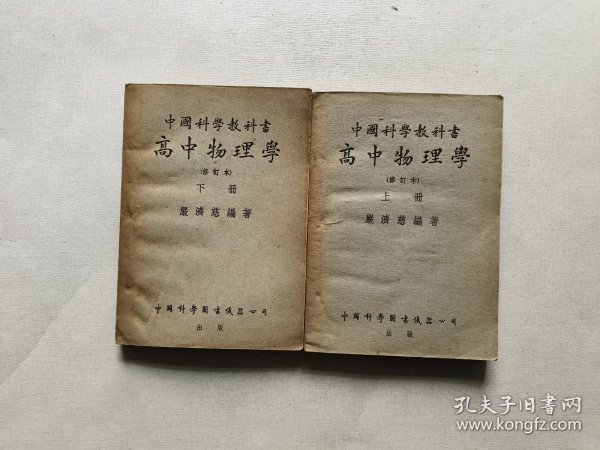 中國科學教科書
高中物理學
(修訂本)
下冊
嚴濟慈編著
中國科學圖書儀器公司
出版
中國科學教科書
高中物理學
(修訂本)
上冊
嚴濟慈編著
中國科學圖書儀器公司
出版
孔夫子旧书网
www.kongfz.com